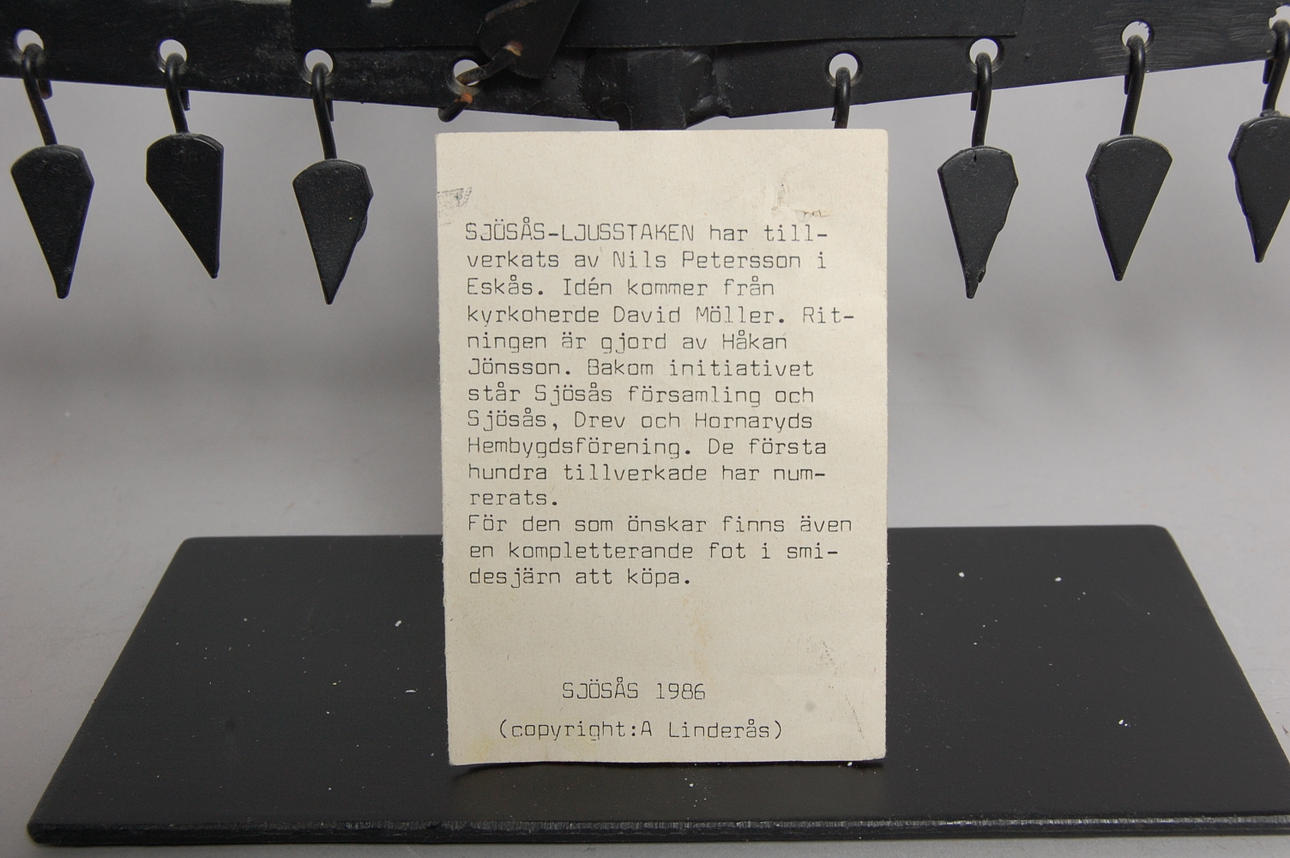 SJÖSÅS-LJUSSTAKEN har till-
verkats av Nils Petersson i
Eskås. Idén kommer från
kyrkoherde David Möller. Rit-
ningen är gjord av Håkan
Jönsson. Bakom initiativet
står Sjösås församling och
Sjösås, Drev och Hornaryds
Hembygdsförening. De första
hundra tillverkade har num-
rerats.
För den som önskar finns även
en kompletterande fot i smi-
desjärn att köpa.
SJÖSÅS 1986
(copyright:A Linderås)